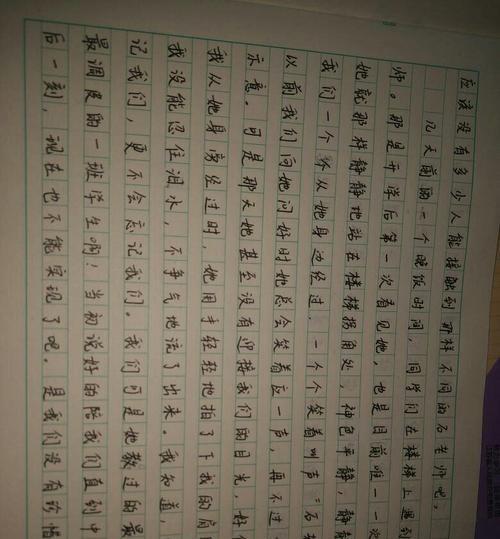 应该没有多少人能接触到那样不同的石老师吧。
几天前的一个晚饭时间,同学们在楼梯上遇到
师。那是开学后第一次看见她,也是目前唯一一次
她就那样静静地站在楼梯拐角处,神色平静,静
我们一个个从她身边经过,一个个笑着叫声:"石
以前我们向她问好时她总会笑着应一声,再不过
示意。可是那天她甚至没有迎接我们的目光,好
我从她身旁经过时,她用手轻轻地拍了下我的肩
我没能忍住泪水,不争气地流了出来。我知道,
记我们,更不会忘记我们。我们可是她教过的最
最调皮的一班学生啊!当初说好的陪我们直到中
后一刻,现在也不能实现了吧。是我们没有珍惜